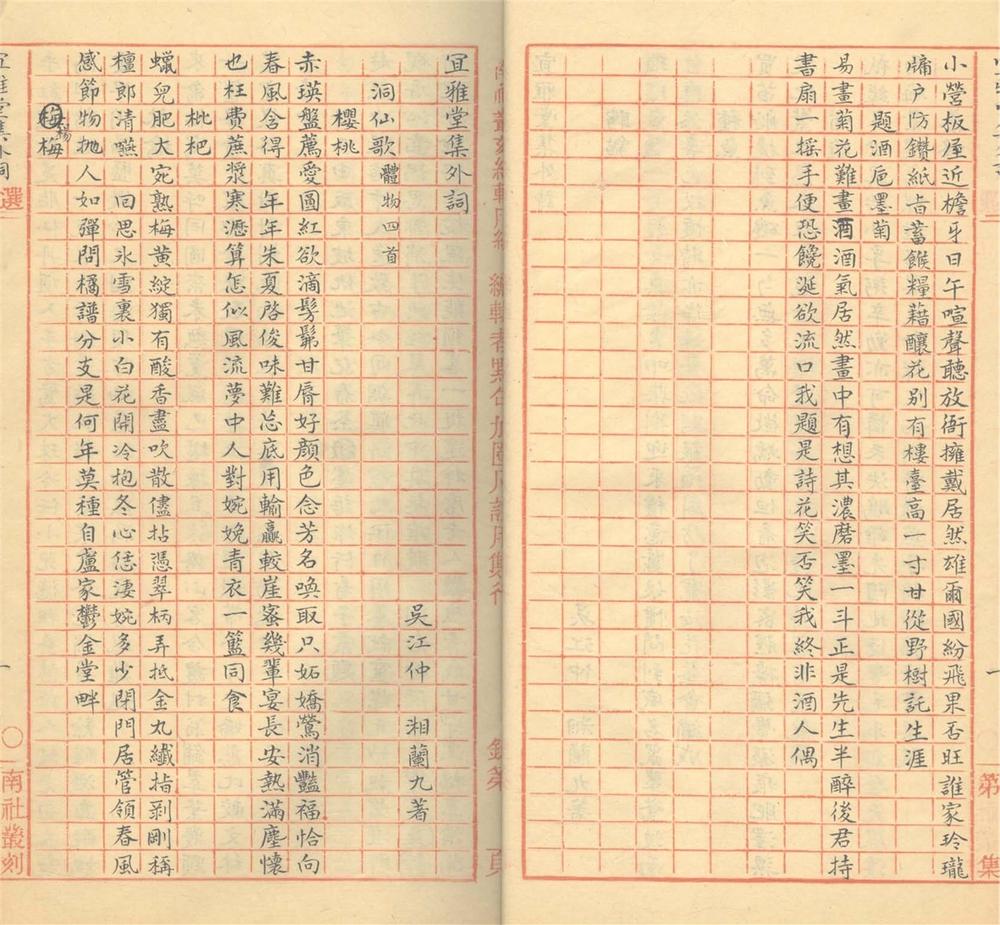 小營板屋近檐牙日午喧聲聽放衙擁戴居然雄爾國紛飛果否旺誰家玲瓏
牖戶防鑽紙旨蓄餱糧藉釀花別有樓臺高一寸甘從野樹託生涯
題酒卮墨菊
易畫菊花難畫酒酒氣居然畫中有想其濃磨墨一斗正是先生半醉後君持
書扇一摇手便恐饞涎欲流口我題是詩花笑否笑我終非酒人偶
第
集
一
宜雅堂集外詞
吳江仲 湘蘭九著
洞仙歌 體物四首
櫻桃
赤瑛盤薦愛圓紅欲滴髣髴甘脣好顏色念芳名喚取只妬嬌鶯消豔福恰向
春風含得 年年朱夏啓俊味難忘底用輸贏較崖蜜幾輩宴長安熟滿塵懷
也枉費蔗漿寒瀝算怎似風流夢中人對婉娩青衣一籃同食
枇杷
蠟皃肥大宛熟梅黃綻獨有酸香盡吹散儘拈憑翠柄弄抵金丸纖指剝剛稱
檀郎清嚥 回思氷雪裏小白花開冷抱冬心恁淒婉多少閉門居管領春風
感節物抛人如彈問橘譜分支是何年莫種自盧家鬱金堂畔
楊梅
宜雅堂集外詞
選
一
南社叢刻